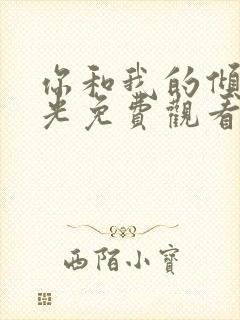 你和我的傾
光免費觀看
西陌小寶